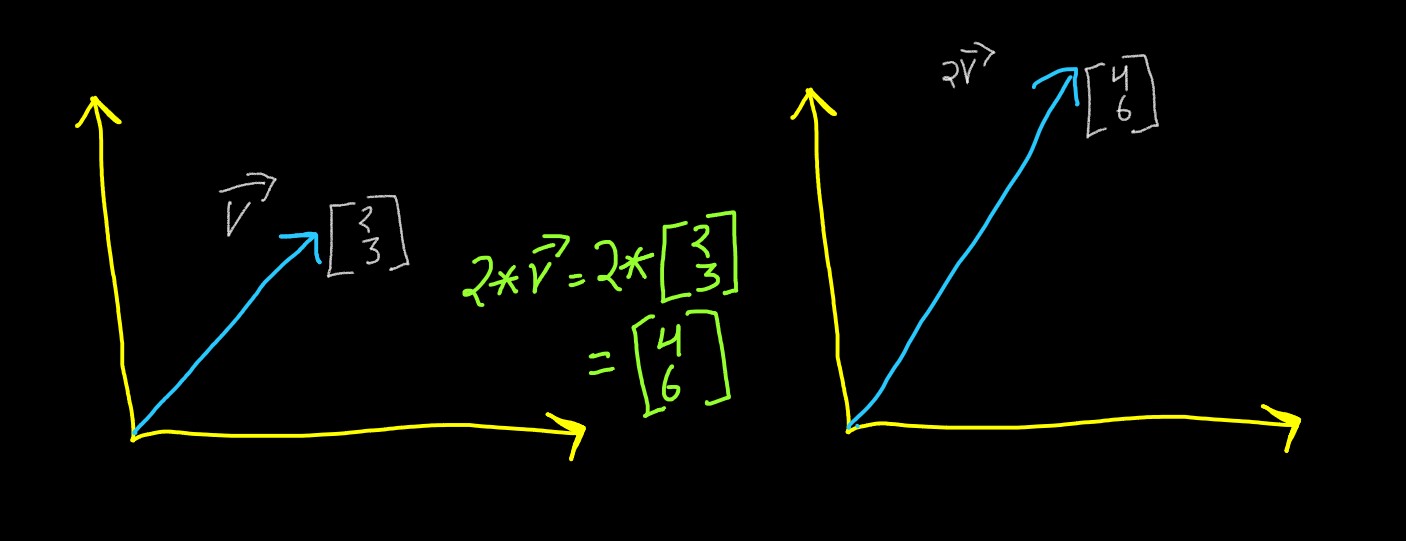 V⃗
[2
3]
2*V⃗ = 2*[2
3]
= [4
6]
2V⃗
[4
6]